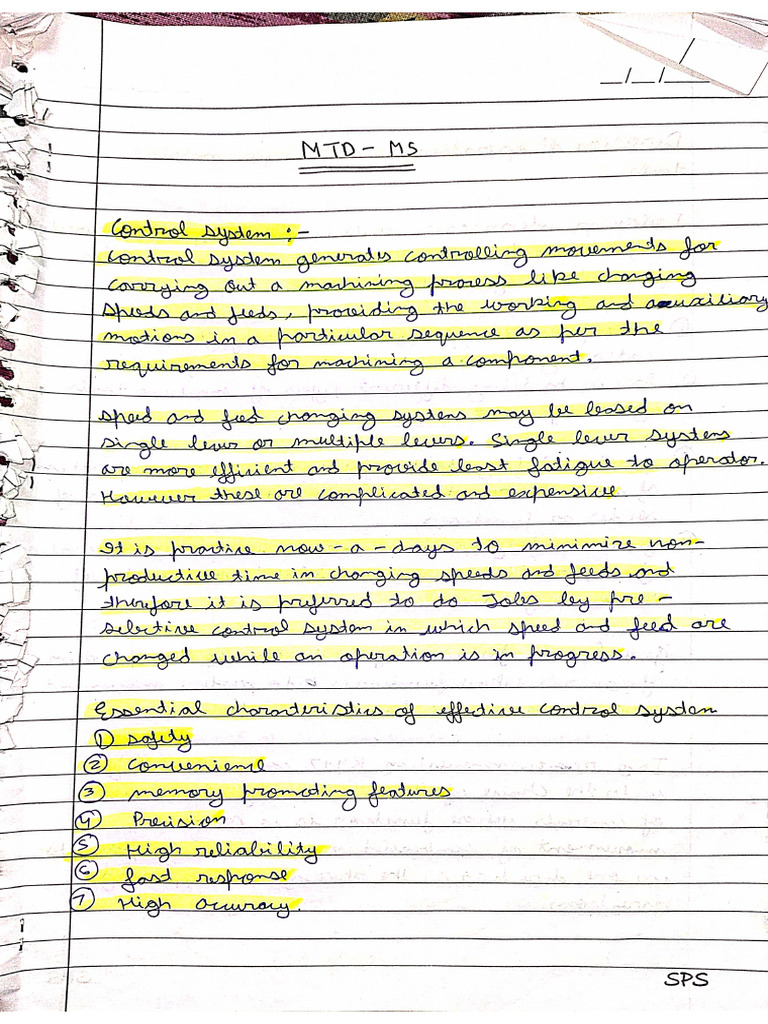 __/__/____
MTD - M5
Control system :-
Control system generates controlling movements for
carrying out a machining process like changing
speeds and feeds, providing the working and auxiliary
motions in a particular sequence as per the
requirements for machining a component.
Speed and feed changing systems may be based on
single lever or multiple levers. Single lever systems
are more efficient and provide least fatigue to operator.
However these are complicated and expensive
It is practice now-a-days to minimize non-
productive time in changing speeds and feeds and
therefore it is preferred to do Jobs by pre-
selective control system in which speed and feed are
changed while an operation is in progress.
Essential characteristics of effective control system
① safety
② Convenience
③ memory promoting features
④ Precision
⑤ High reliability
⑥ fast response
⑦ High accuracy.
SPS